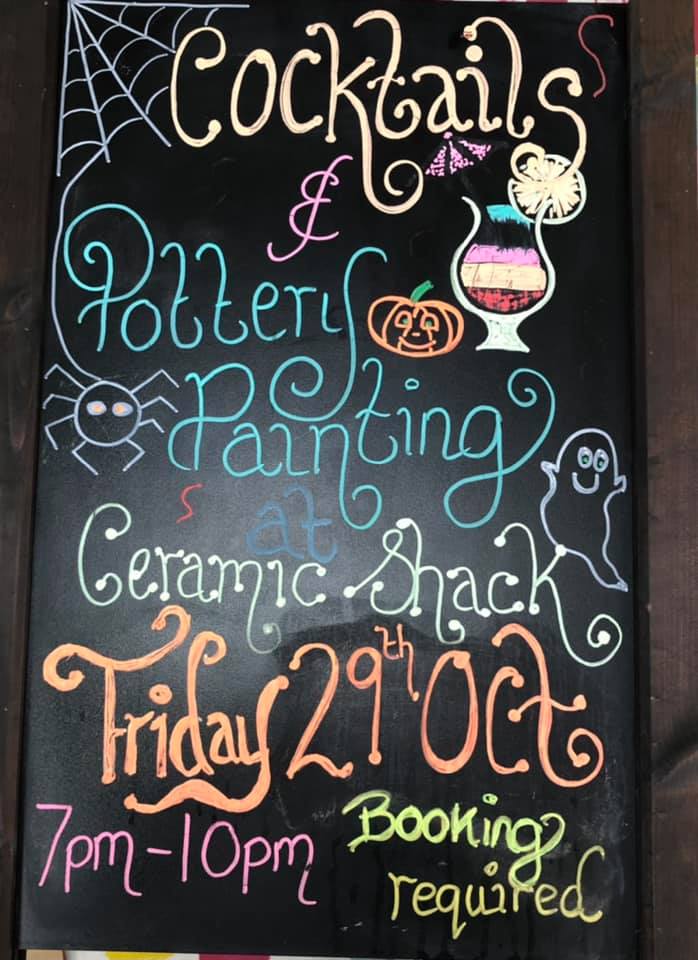 Cocktails
&
Pottery
Painting
at
Ceramic Shack
Friday 29th Oct
7pm-10pm
Booking
required